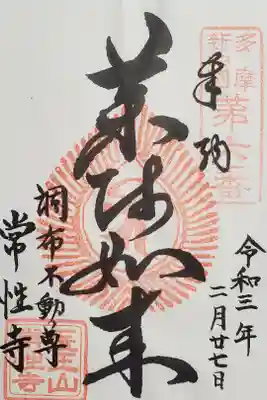 奉納
多摩
新四国
第六番
薬師如来
令和三年
二月廿七日
調布不動尊
常性寺